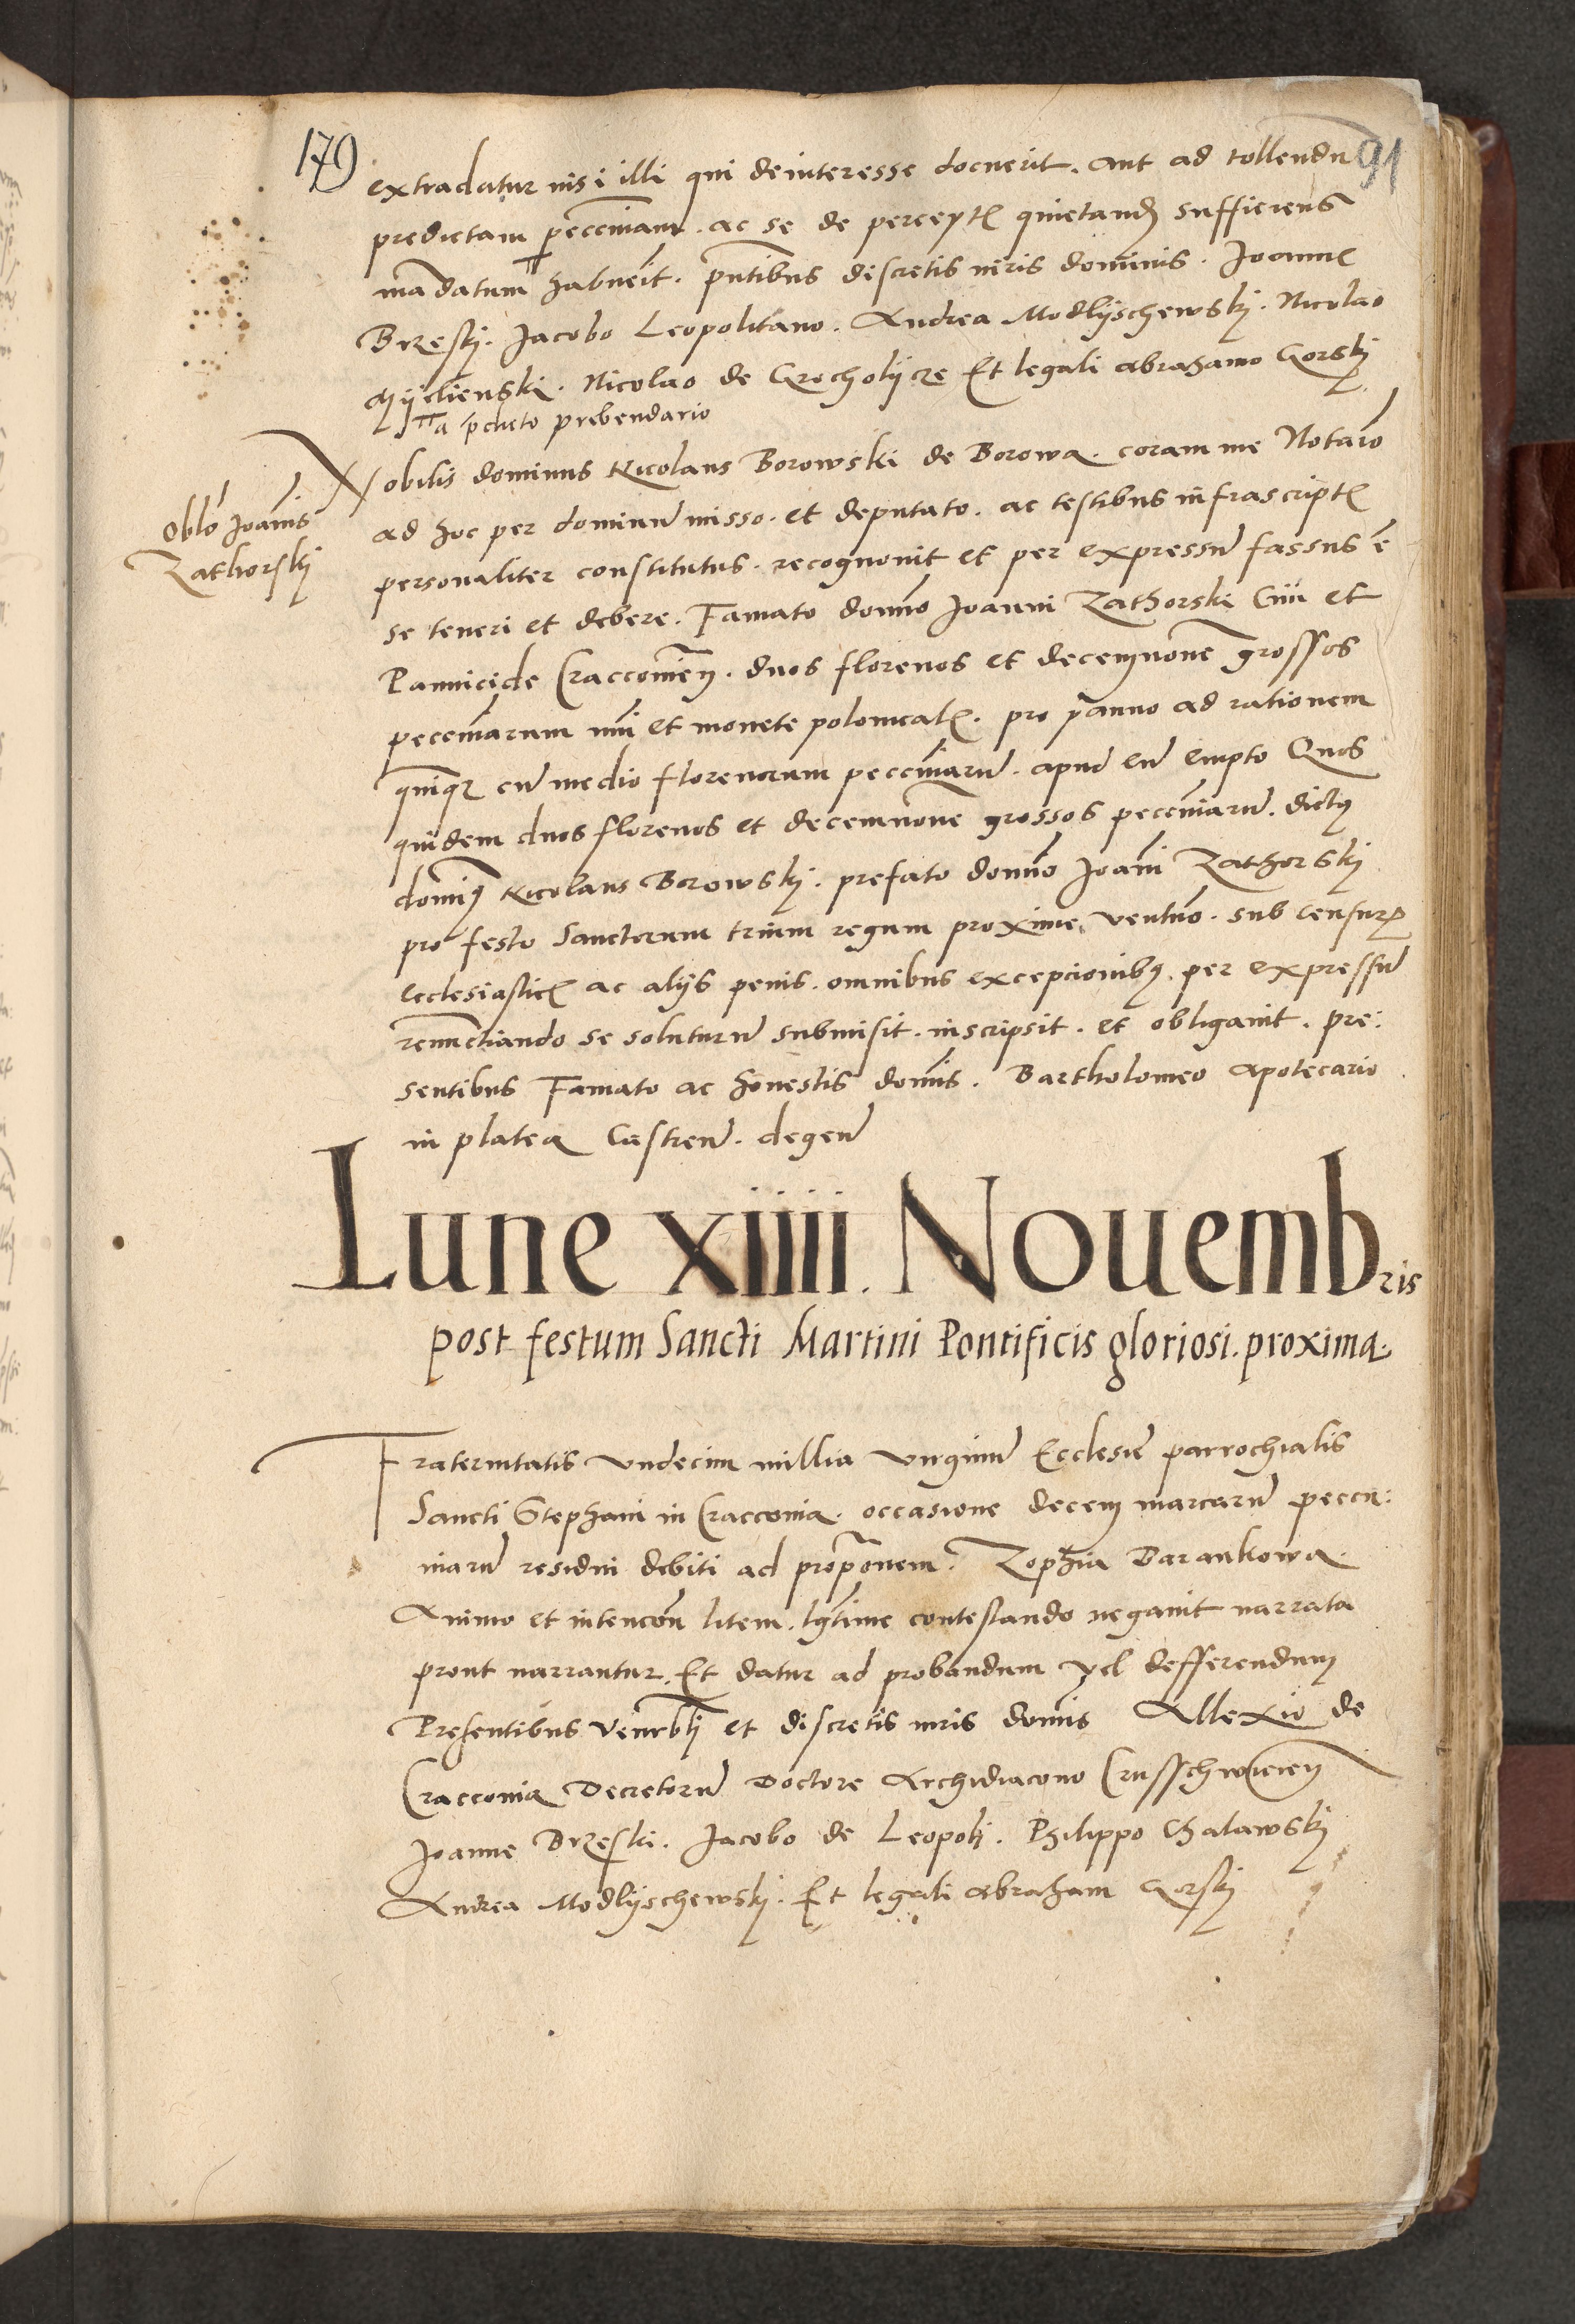 179
91
extradatur nisi illi qui deinteresse docuerit. aut ad tollendu
predictam peccuniam. ac se de percept quietand sufficiens
mandatum habuerit. pntibus discretis viris dominis. Joanne
Brzeski. Jacobo Leopolitano. Andrea Modlyschewski. Nicolao
Nicolao de Grocholycze Et legali abrahamo Gorski
a predicto prebendario
Oblo Joannis
Zathorski
Nobilis dominus Nicolaus Borowski de Borowa. coram me Notario
ad hoc per dominum misso. et deputato. ac testibus infrascript
personaliter constitutus. recognouit et per expressum fassus e
se teneri et debere. Famato domino Joanni Zathorski Ciui et
Pannicide Craccouien. duos florenos et decemnouem grossos
peccuniarum nui et monete polonical. pro panno ad rationem
quinque cum medio florenorum peccuniarum. apud eum empto Quos
quidem duos florenos et decemnouem grossos peccuniarum. dictus
dominus Nicolaus Borowski. prefato domino Joanni Zathorski
pro festo Sanctorum trium regum proxime venturo. sub censuris
ecclesiastic ac alijs penis. omnibus excepcionibus. per expressum
renunctiando se soluturum submisit. inscripsit. et obligauit. pre:
sentibus Famato ac honestis dominis. Bartholomeo apotecario
in platea Castren. degen
Lune xiiii. Nouembris
post festum Sancti Martini Pontificis gloriosi. proxima.
Fraternitatis vndecim millia virginum Ecclesie parrochialis
Sancti Stephani in Cracouia. occasione decem marcarum peccu:
niarum residui debiti ad proponem. Zophia Barankowa.
Animo et intencone litem. lgtime contestando negauit narrata
prout narrantur. Et datur ad probandum vel defferendum
Presentibus venerbli et discretis viris dominis Allexio de
Cracouia Decretorum Doctore Archidiacono Crusschwicien
Joanne Brzeski. Jacobo de Leopoli. Philippo Chalawski
Andrea Modlyschewski. Et legali abraham Gorski